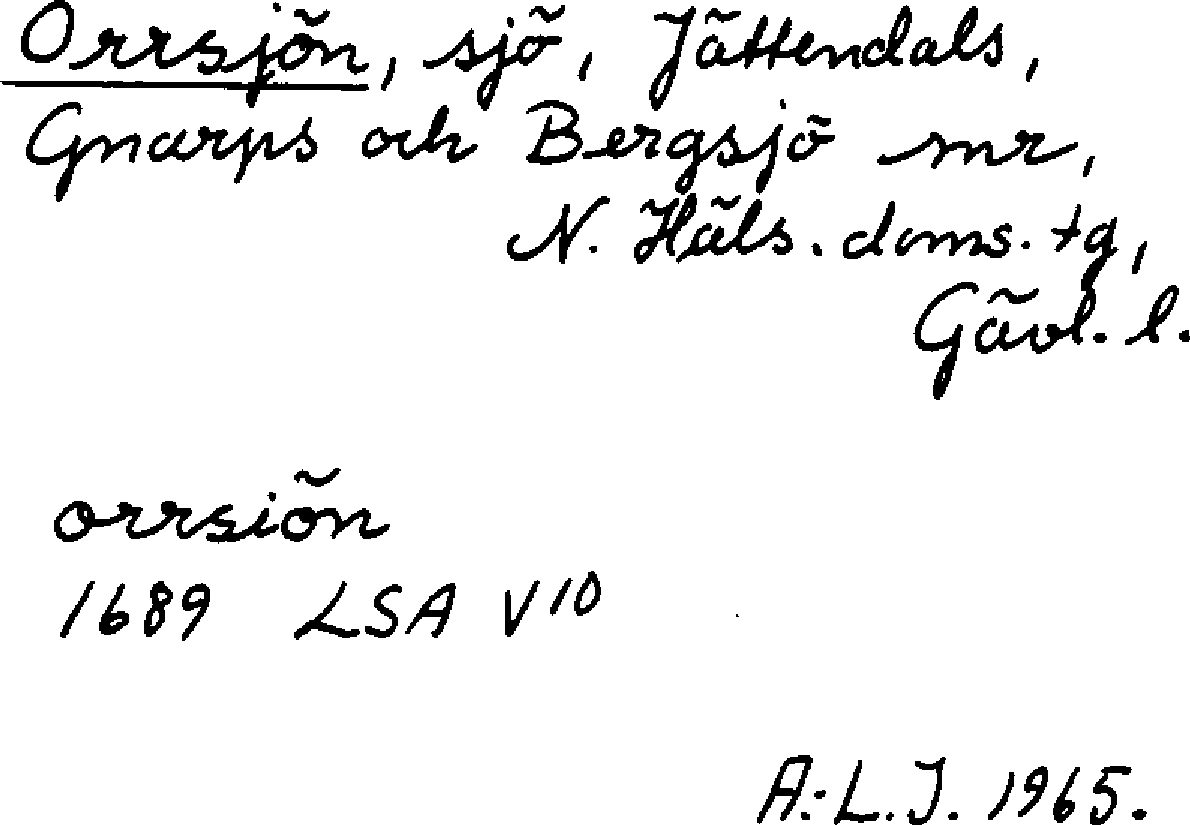 Orrsjön, sjö, Jättendals,
Gnarps och Bergsjö snr,
N. Häls. doms. tg,
Gävl. l.
orrsiön
1689 LSA V¹⁰
A.-L.J. 1965.